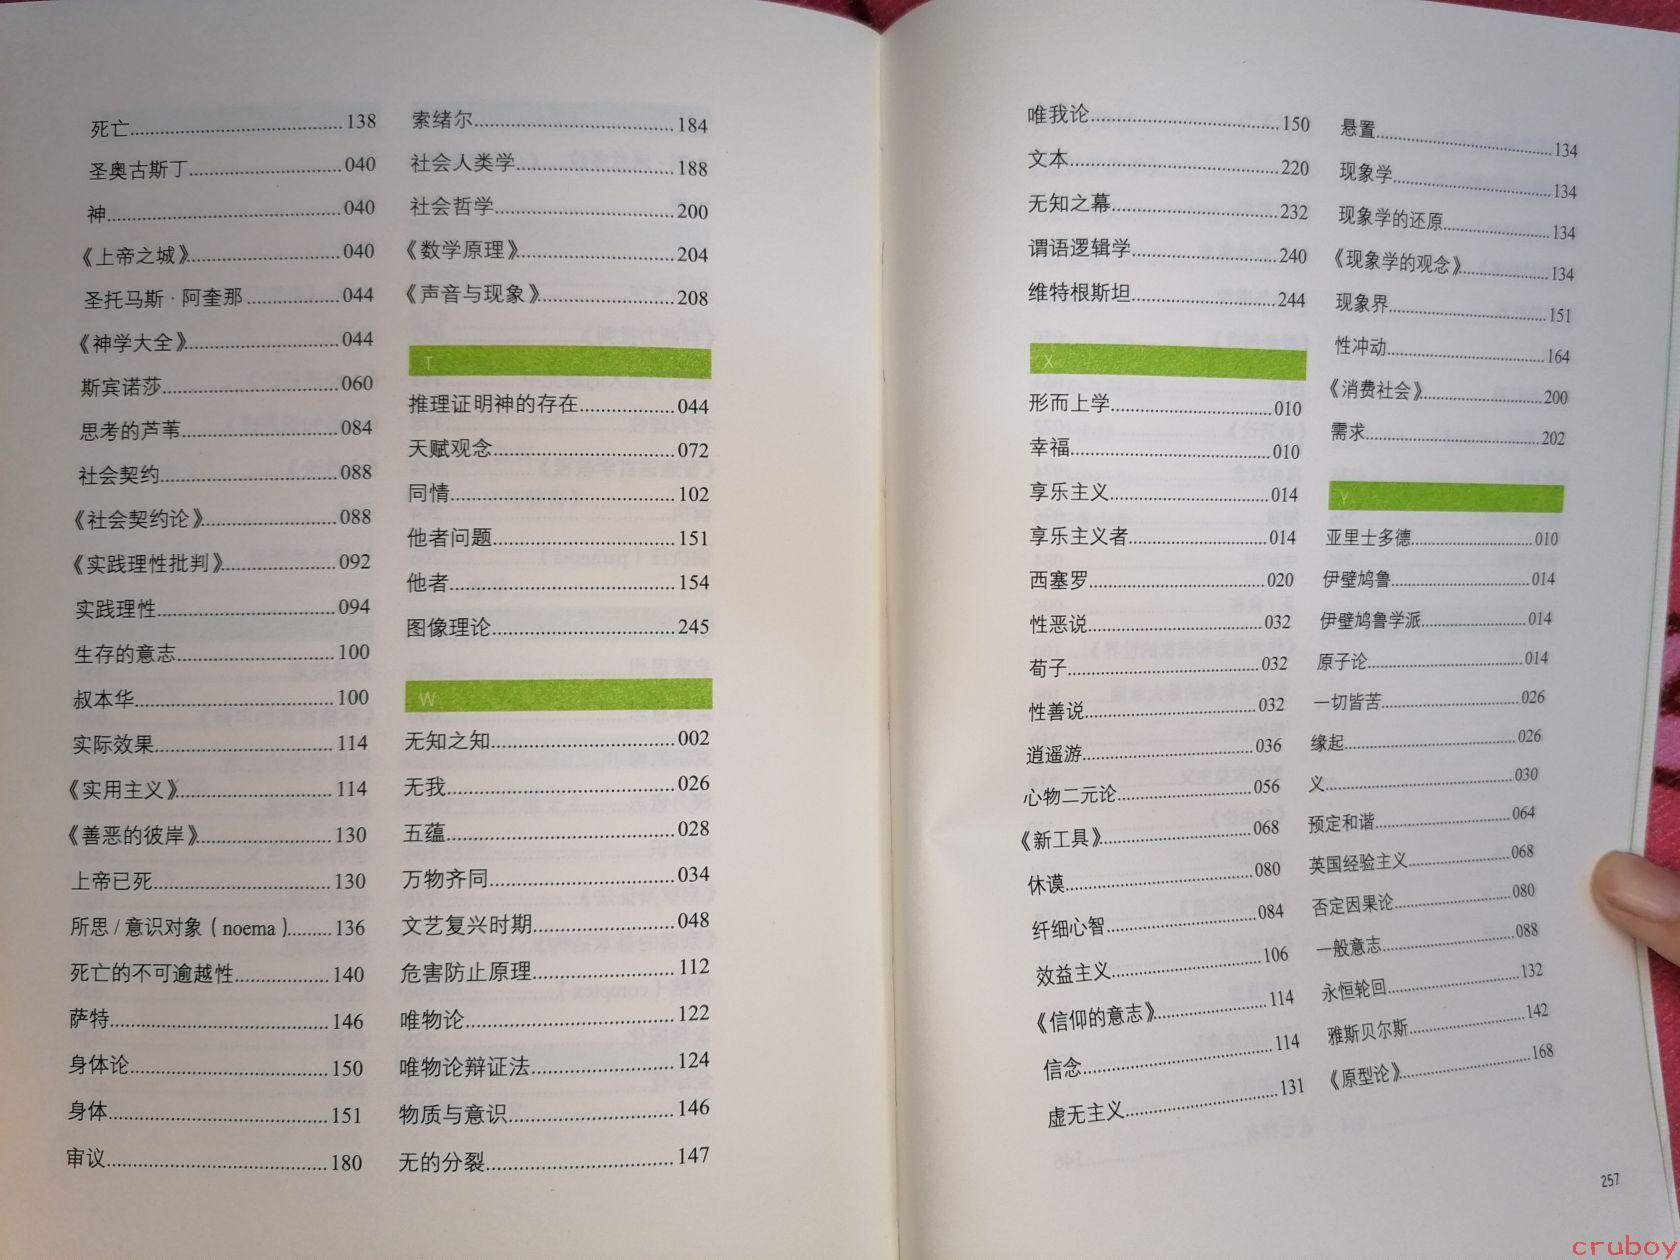 死亡 138
圣奥古斯丁 040
神 040
《上帝之城》 040
圣托马斯·阿奎那 044
《神学大全》 044
斯宾诺莎 060
思考的芦苇 084
社会契约 088
《社会契约论》 088
《实践理性批判》 092
实践理性 094
生存的意志 100
叔本华 100
实际效果 114
《实用主义》 114
《善恶的彼岸》 130
上帝已死 130
所思/意识对象(noema) 136
死亡的不可逾越性 140
萨特 146
身体论 150
身体 151
审议 180
索绪尔 184
社会人类学 188
社会哲学 200
《数学原理》 204
《声音与现象》 208
T
推理证明神的存在 044
天赋观念 072
同情 102
他者问题 151
他者 154
图像理论 245
W
无知之知 002
无我 026
五蕴 028
万物齐同 034
文艺复兴时期 048
危害防止原理 112
唯物论 122
唯物论辩证法 124
物质与意识 146
无的分裂 147
唯我论 150
文本 220
无知之幕 232
谓语逻辑学 240
维特根斯坦 244
X
形而上学 010
幸福 010
享乐主义 014
享乐主义者 014
西塞罗 020
性恶说 032
荀子 032
性善说 032
逍遥游 036
心物二元论 056
《新工具》 068
休谟 080
纤细心智 084
效益主义 106
《信仰的意志》 114
信念 114
虚无主义 131
悬置 134
现象学 134
现象学的还原 134
《现象学的观念》 134
现象界 151
性冲动 164
《消费社会》 200
需求 202
Y
亚里士多德 010
伊壁鸠鲁 014
伊壁鸠鲁学派 014
原子论 014
一切皆苦 026
缘起 026
义 030
预定和谐 064
英国经验主义 068
否定因果论 080
一般意志 088
永恒轮回 132
雅斯贝尔斯 142
《原型论》 168
257
cruboy